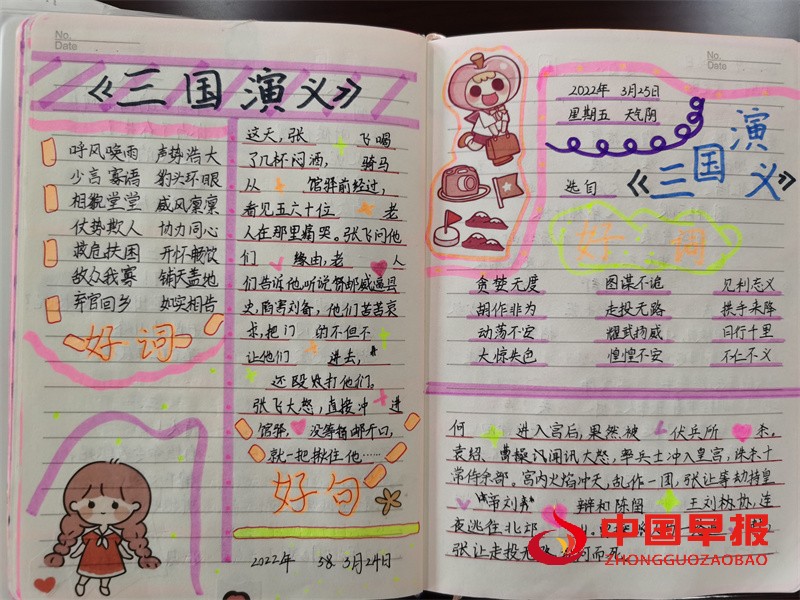 No.
Date
《三国演义》
呼风唤雨 声势浩大
少言寡语 豹头环眼
相貌堂堂 威风凛凛
仗势欺人 协力同心
救危扶困 开怀畅饮
敌众我寡 铺天盖地
弃官回乡 如实相告
好词
这天,张飞喝
了几杯闷酒,骑马
从馆驿前经过,
看见五六十位老
人在那里痛哭。张飞问他
们缘由,老人
们告诉他,听说督邮威逼县
史,陷害刘备,他们苦苦哀
求,把门的不但不
让他们进去,
还殴打他们。
张飞大怒,直接冲进
馆驿,没等督邮开口,
就一把揪住他……
好句
2022年 3月24日
No.
Date
2022年 3月25日
星期五 天气阴
选自《三国演义》
好词
贪婪无度 图谋不追 见利忘义
胡作非为 走投无路 拱手来降
动荡不安 耀武扬威 日行千里
大惊失色 惶惶不安 不仁不义
何进入宫后,果然被伏兵所杀,
袁绍、曹操闻讯大怒,率兵士冲入皇宫,诛杀十
常侍余部。宫内火焰冲天,乱作一团,张让等劫持皇
帝刘辩和陈留王刘协,连
夜逃往北邙
张让走投无路
而死
中国早报
ZHONGGUOZAOBAO